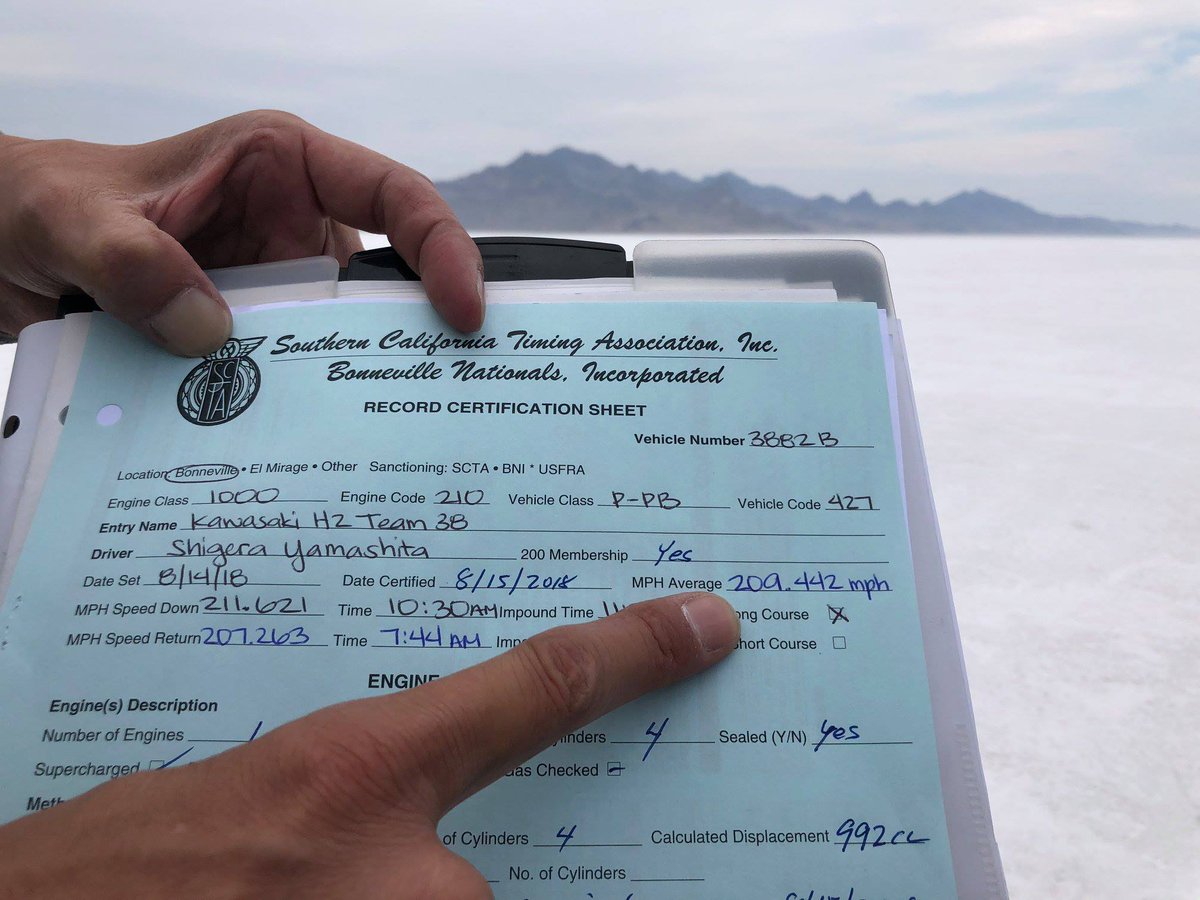 SCTA
Southern California Timing Association, Inc.
Bonneville Nationals, Incorporated
RECORD CERTIFICATION SHEET
Vehicle Number 3882B
Location: Bonneville • El Mirage • Other Sanctioning: SCTA • BNI * USFRA
Engine Class 1000 Engine Code 210 Vehicle Class P-PB Vehicle Code 427
Entry Name Kawasaki H2 Team 38
Driver Shigera Yamashita 200 Membership Yes
Date Set 8/14/18 Date Certified 8/15/2018 MPH Average 209.442 mph
MPH Speed Down 211.621 Time 10:30AM Impound Time 11 ong Course
MPH Speed Return 207.263 Time 7:44 AM Imp hort Course
ENGINE
Engine(s) Description
Number of Engines 1 linders 4 Sealed (Y/N) Yes
Supercharged Gas Checked
Meth
of Cylinders 4 Calculated Displacement 992cc
No. of Cylinders